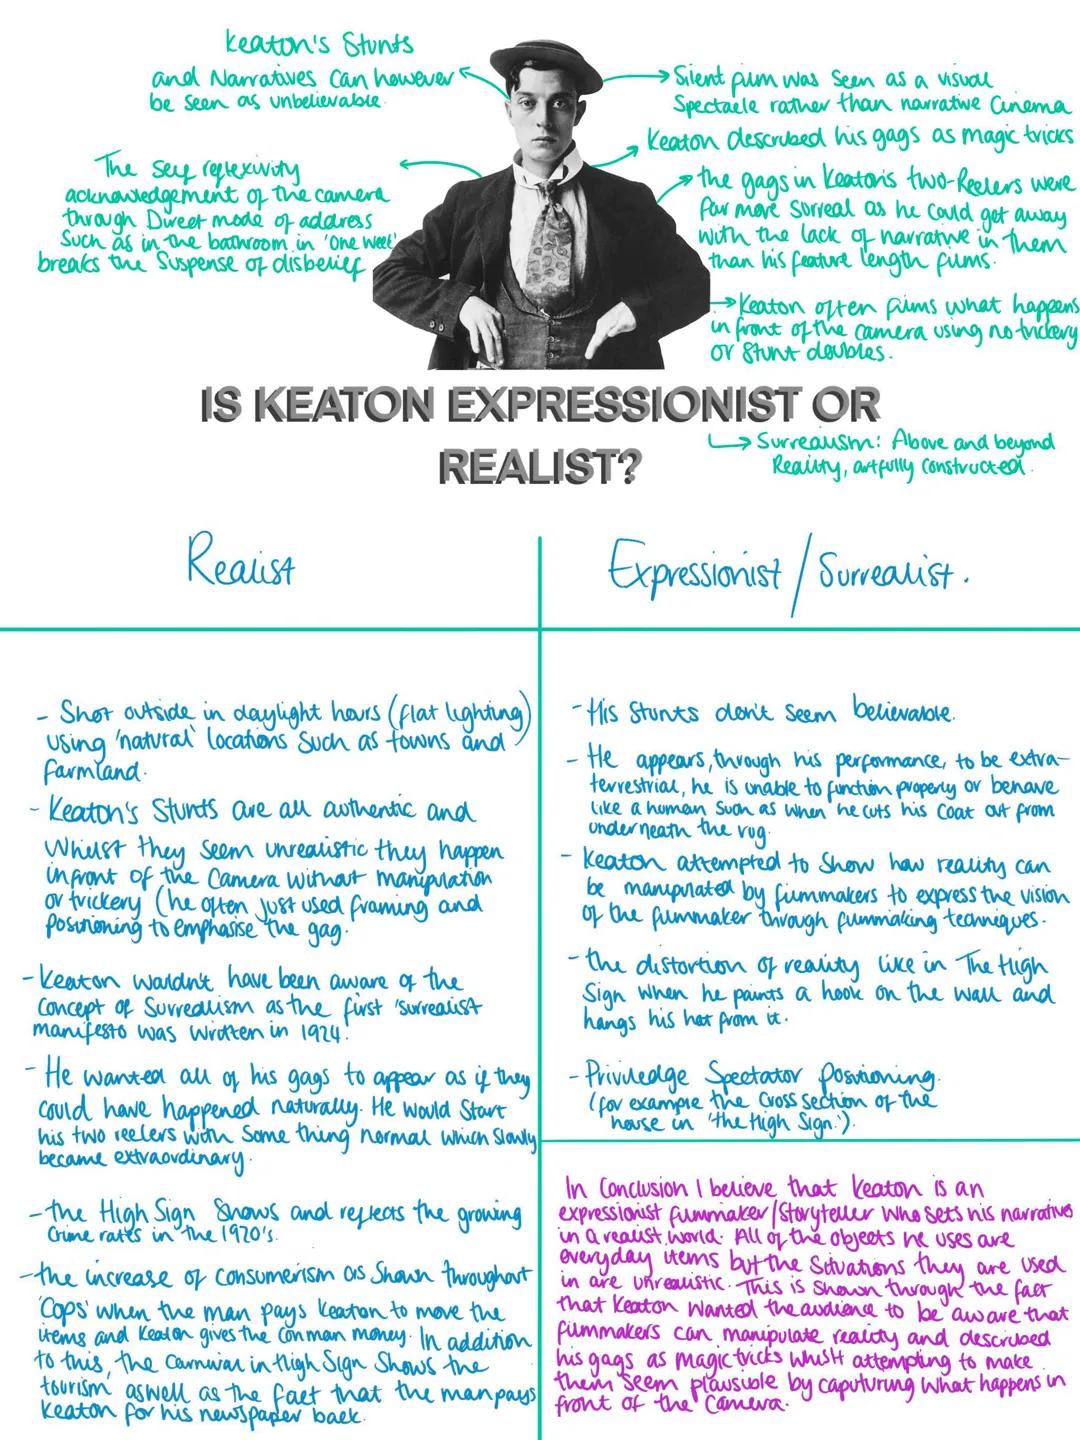 Keaton's Stunts
and Narratives Can however
be seen as unbelievable.
The self reflexivity
acknowledgement of the camera
through Direct mode of address
Such as in the bathroom in 'One Week'
breaks the Suspense of disbelief
Silent film was seen as a visual
Spectacle rather than narrative Cinema
Keaton described his gags as magic tricks
the gags in Keaton's two-Reelers were
far more Sorreal as he could get away
with the lack of narrative in them
than his feature length films.
Keaton often films what happens
in front of the camera using no trickery
or Stunt doubles.
IS KEATON EXPRESSIONIST OR
REALIST?
Surrealism: Above and beyond
Reality, artfully constructed.
Realist
Expressionist / Surrealist.
- Shot outside in daylight hours (flat lighting)
using 'natural' locations Such as towns and
farmland.
- Keaton's Stunts are all authentic and
Whilst they seem unrealistic they happen
infront of the Camera without manipulation
or trickery (he often just used framing and
positioning to emphasise the gag.
- Keaton wouldn't have been aware of the
concept of Surrealism as the first 'surrealist
manifesto was written in 1924.
- He wanted all of his gags to appear as if they
could have happened naturally. He would Start
his two reelers with Some thing normal which slowly
became extraordinary.
- the High Sign Shows and reflects the growing
Crime rates in the 1920's.
- the increase of consumerism as Shown throughout
'Cops' when the man pays Keaton to move the
items and Keaton gives the Conman money. In addition
to this, the Carnival in High Sign Shows the
tourism aswell as the fact that the man pays
Keaton for his newspaper back.
- His Stunts don't seem believable.
- He appears, through his performance, to be extra-
terrestrial, he is unable to function properly or behave
like a human such as when he cuts his Coat out from
underneath the rug.
- Keaton attempted to Show how reality can
be manipulated by filmmakers to express the vision
of the filmmaker through filmmaking techniques.
- the distortion of reality like in The High
Sign when he paints a hook on the wall and
hangs his hat from it.
- Priviledge Spectator Positioning.
(for example the Cross section of the
house in 'the High Sign.').
In Conclusion I believe that Keaton is an
expressionist filmmaker/Storyteller who sets his narratives
in a realist world. All of the objects he uses are
everyday items but the Situations they are used
in are unrealistic. This is Shown through the fact
that Keaton wanted the audience to be aware that
filmmakers can manipulate reality and described
his gags as magic tricks whilst attempting to make
them seem plausible by caputuring what happens in
front of the Camera.